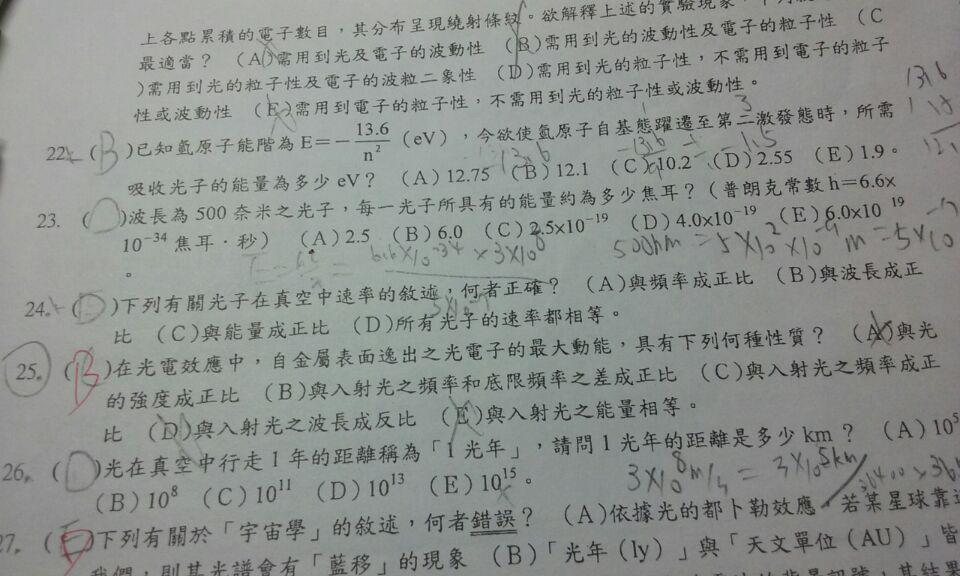 上各點累積的電子數目，其分布呈現繞射條紋。欲解釋上述的實驗現象，下列
最適當？ (A)需用到光及電子的波動性 (B)需用到光的波動性及電子的粒子性 (C
)需用到光的粒子性及電子的波粒二象性 (D)需用到光的粒子性，不需用到電子的粒子
性或波動性 (E)需用到電子的粒子性，不需用到光的粒子性或波動性。
22. (B)已知氫原子能階為 E=−13.6/n² (eV)，今欲使氫原子自基態躍遷至第二激發態時，所需
吸收光子的能量為多少 eV？ (A) 12.75 (B) 12.1 (C) 10.2 (D) 2.55 (E) 1.9。
23. ( )波長為 500 奈米之光子，每一光子所具有的能量約為多少焦耳？(普朗克常數 h=6.6x
10⁻³⁴ 焦耳．秒) (A) 2.5 (B) 6.0 (C) 2.5x10⁻¹⁹ (D) 4.0x10⁻¹⁹ (E) 6.0x10 ¹⁹
。
6.6×10⁻³⁴×3×10⁸
500nm=5×10²×10⁻⁹m=5×10⁻⁷
24. (D)下列有關光子在真空中速率的敘述，何者正確？ (A)與頻率成正比 (B)與波長成正
比 (C)與能量成正比 (D)所有光子的速率都相等。
25. (B)在光電效應中，自金屬表面逸出之光電子的最大動能，具有下列何種性質？ (A)與光
的強度成正比 (B)與入射光之頻率和底限頻率之差成正比 (C)與入射光之頻率成正
比 (D)與入射光之波長成反比 (E)與入射光之能量相等。
26. (D)光在真空中行走 1 年的距離稱為「1 光年」，請問 1 光年的距離是多少 km？ (A) 10⁵
(B) 10⁸ (C) 10¹¹ (D) 10¹³ (E) 10¹⁵。
3×10⁸m/s=3×10⁵km/
27. (E)下列有關於「宇宙學」的敘述，何者錯誤？ (A)依據光的都卜勒效應，若某星球靠近
我們，則其光譜會有「藍移」的現象 (B)「光年(ly)」與「天文單位(AU)」皆